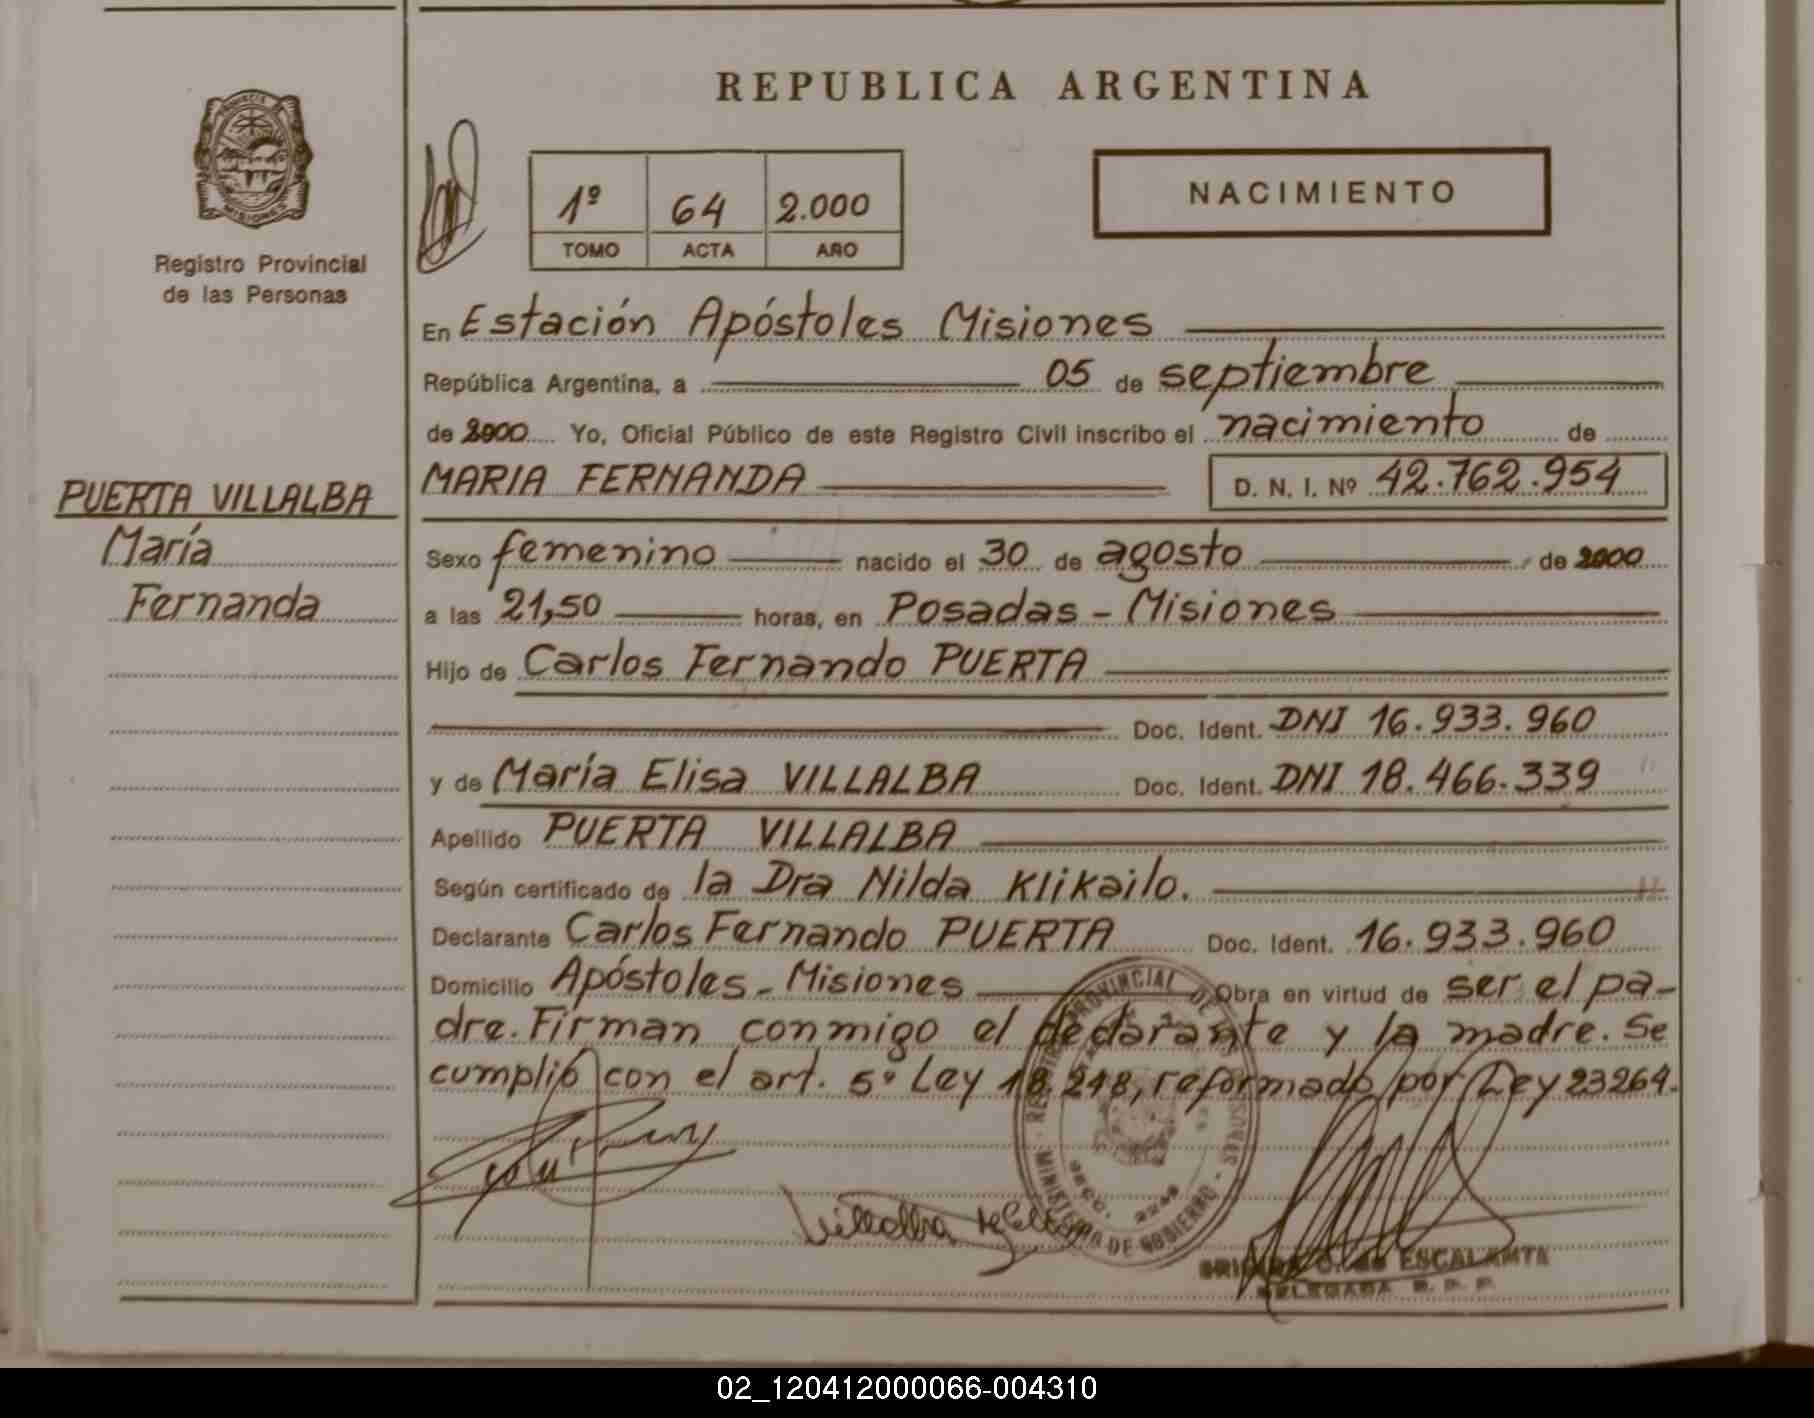 REPUBLICA ARGENTINA
PROVINCIA DE
MISIONES
Registro Provincial
de las Personas
1º 64 2.000
TOMO ACTA AÑO
NACIMIENTO
En Estación Apóstoles Misiones
República Argentina, a 05 de septiembre
de 2000 Yo, Oficial Público de este Registro Civil inscribo el nacimiento de
PUERTA VILLALBA
María
Fernanda
MARIA FERNANDA D. N. I. Nº 42.762.954
Sexo femenino nacido el 30 de agosto de 2000
a las 21,50 horas, en Posadas - Misiones
Hijo de Carlos Fernando PUERTA
Doc. Ident. DNI 16.933.960
y de María Elisa VILLALBA Doc. Ident. DNI 18.466.339
Apellido PUERTA VILLALBA
Según certificado de la Dra Nilda Klikailo.
Declarante Carlos Fernando PUERTA Doc. Ident. 16.933.960
Domicilio Apóstoles - Misiones Obra en virtud de ser el pa-
dre. Firman conmigo el declarante y la madre. Se
cumplió con el art. 5º Ley 18.248, reformado por Ley 23264.
REGISTRO PROVINCIAL DE LAS PERSONAS
MINISTERIO DE GOBIERNO
Villalba
ESCALANTE
DELEGADA R. P. P.
02_120412000066-004310